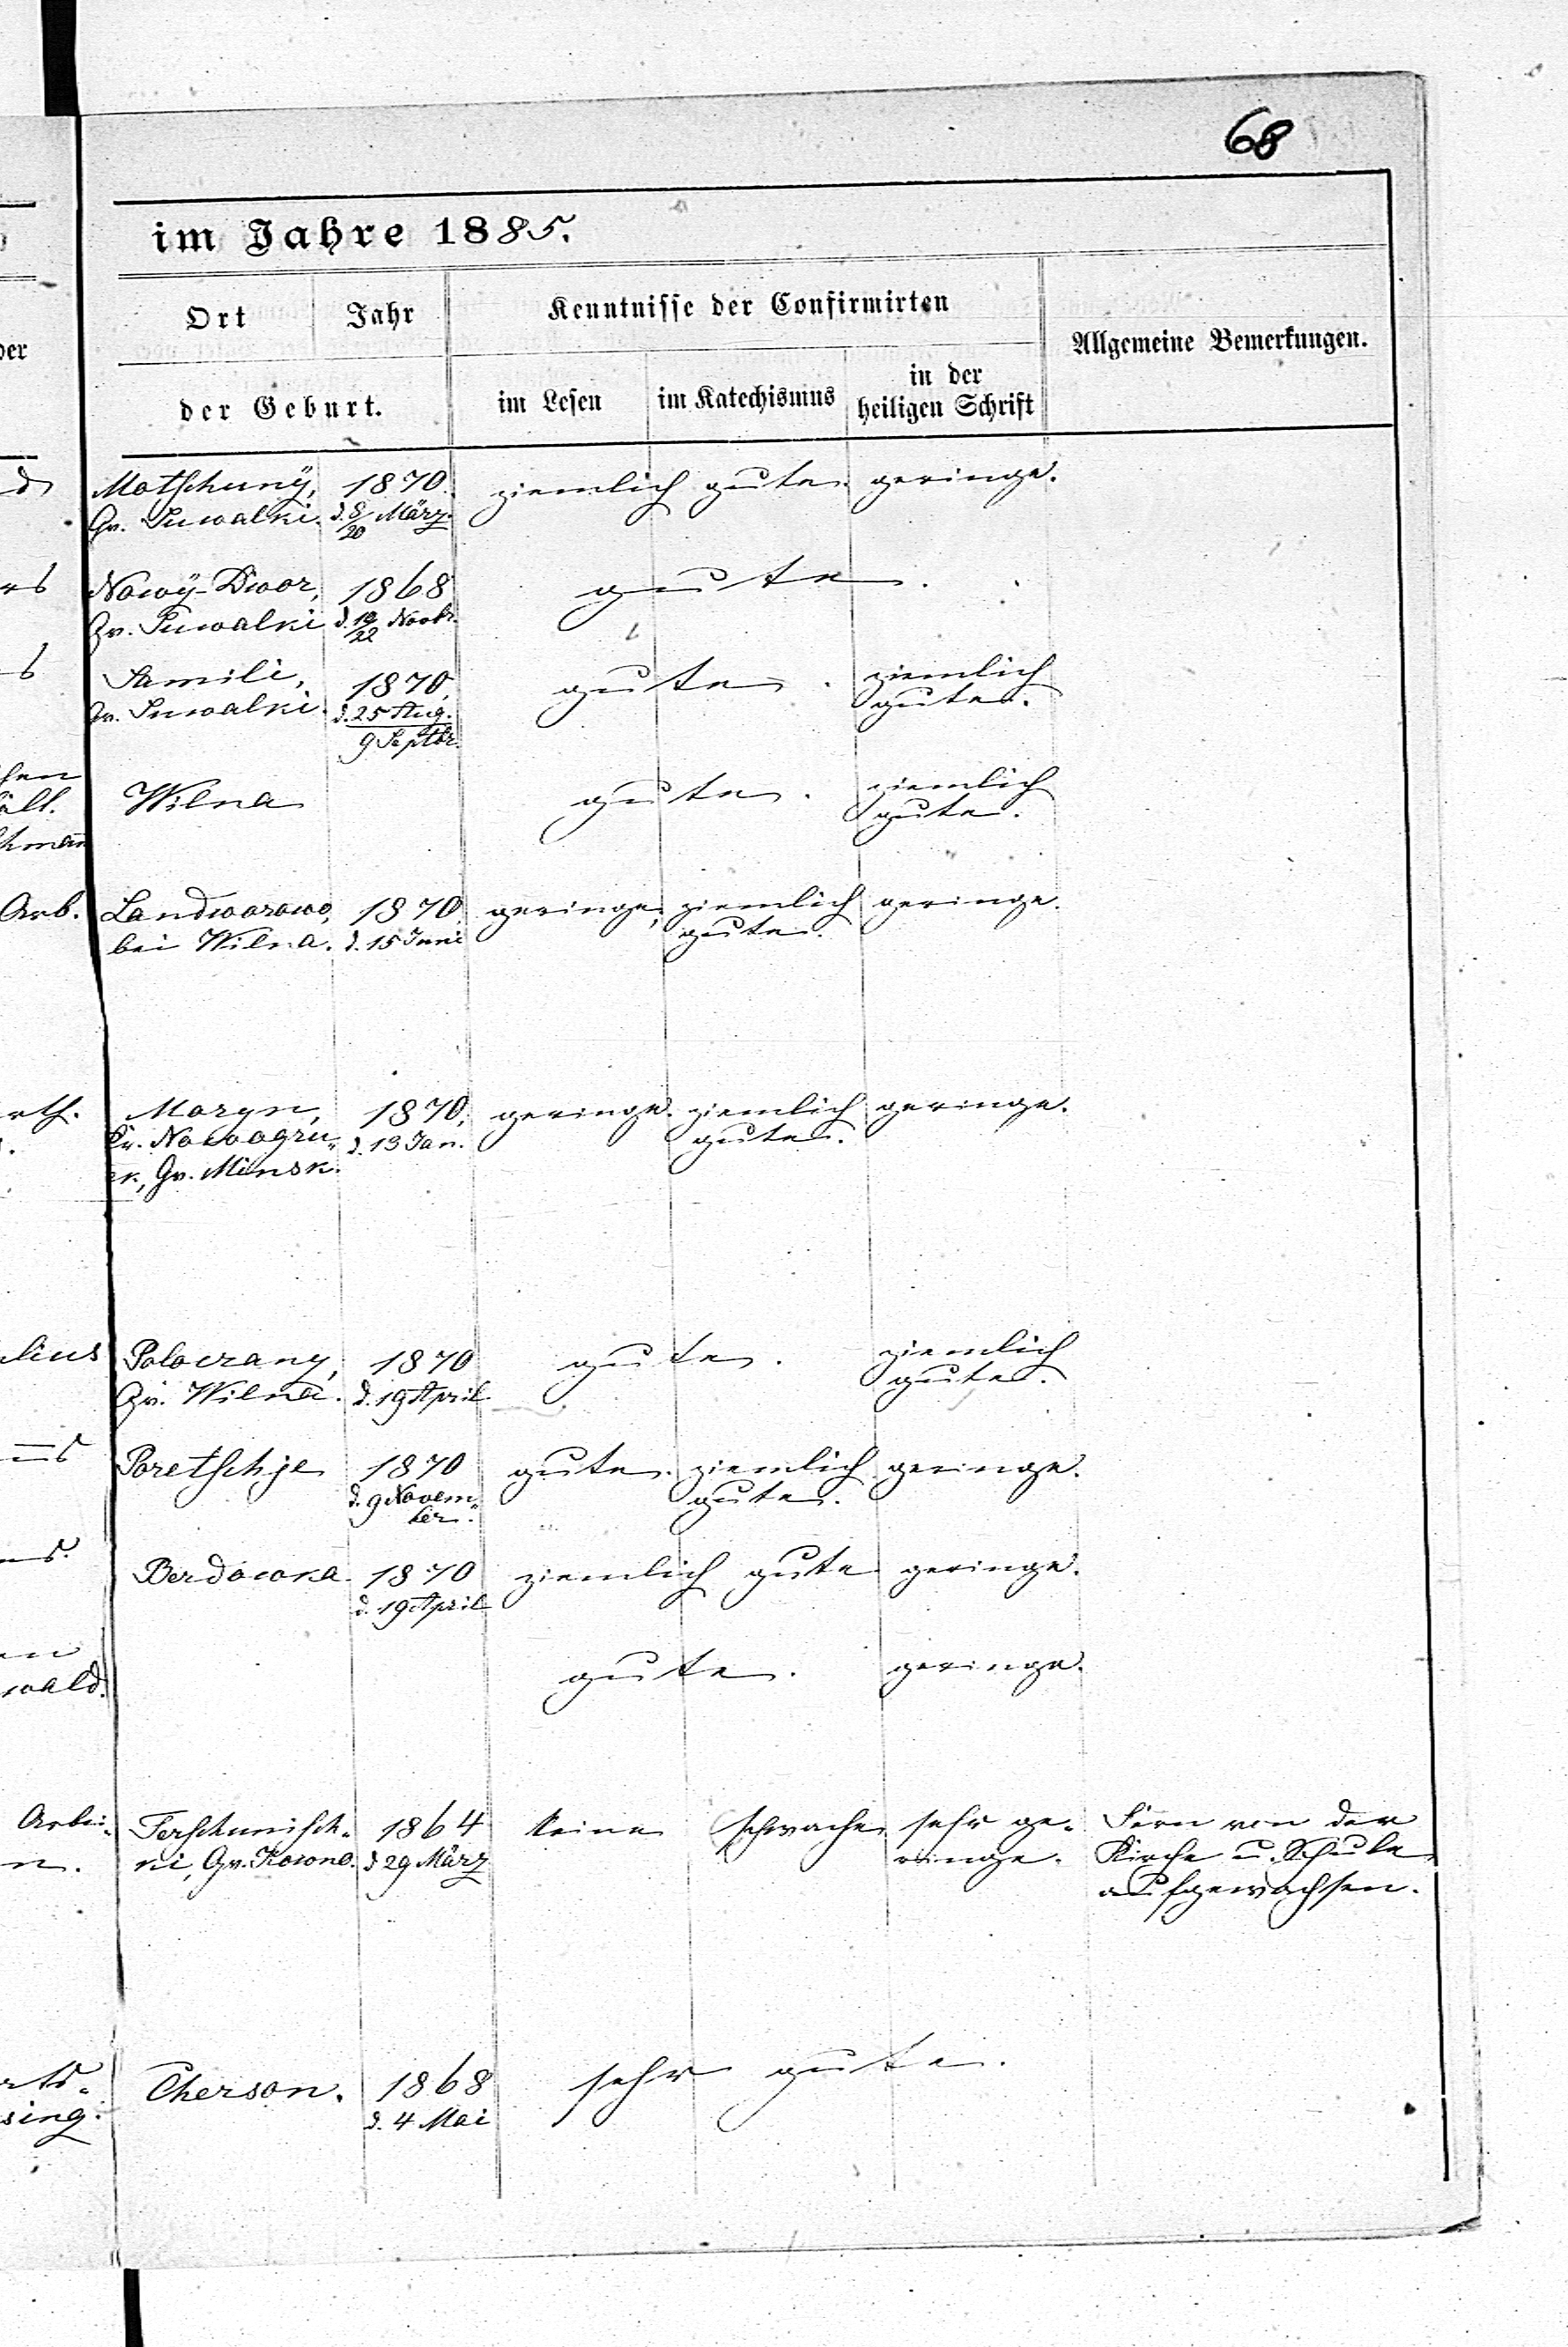 68
im Jahre 1885.
Ort Jahr Kenntnisse der Confirmirten Allgemeine Bemerkungen.
der Geburt. im Lesen im Katechismus in der heiligen Schrift
Motschuny, 1870. ziemlich gute. geringe.
Gv. Suwalki. d. 8/20 März.
Nowÿ-Dwor, 1868 gute.
Gv. Suwalki d. Novbr.
Samili, 1870, gute. ziemlich
Gv. Suwalki. d. 25 Aug. gute.
9 Septbr.
Wilna gute. ziemlich
gute.
Arb. Landworowo, 1870, geringe, ziemlich geringe.
bei Wilna. d. 15 Juni gute.
Moryn, 1870, geringe. ziemlich geringe.
Kr. Nowogru- d. 13 Jan. gute.
Gv. Minsk.
Polocrany, 1870 gute. ziemlich
Gv. Wilna. d. 19 April. gute.
Poretschje 1870 gute. ziemlich geringe.
d. 9 Novem- gute.
ber.
Berdowka. 1870 ziemlich gute geringe.
d. 19 April
gute. geringe.
wald.
Arbei- Terschunisch- 1864 keine schwache sehr ge- Fern von der
ki, Gv. Kowno. d 29 März ringe. Kirche u. Schule
aufgewachsen.
Cherson. 1868 sehr gute.
d. 4 Mai